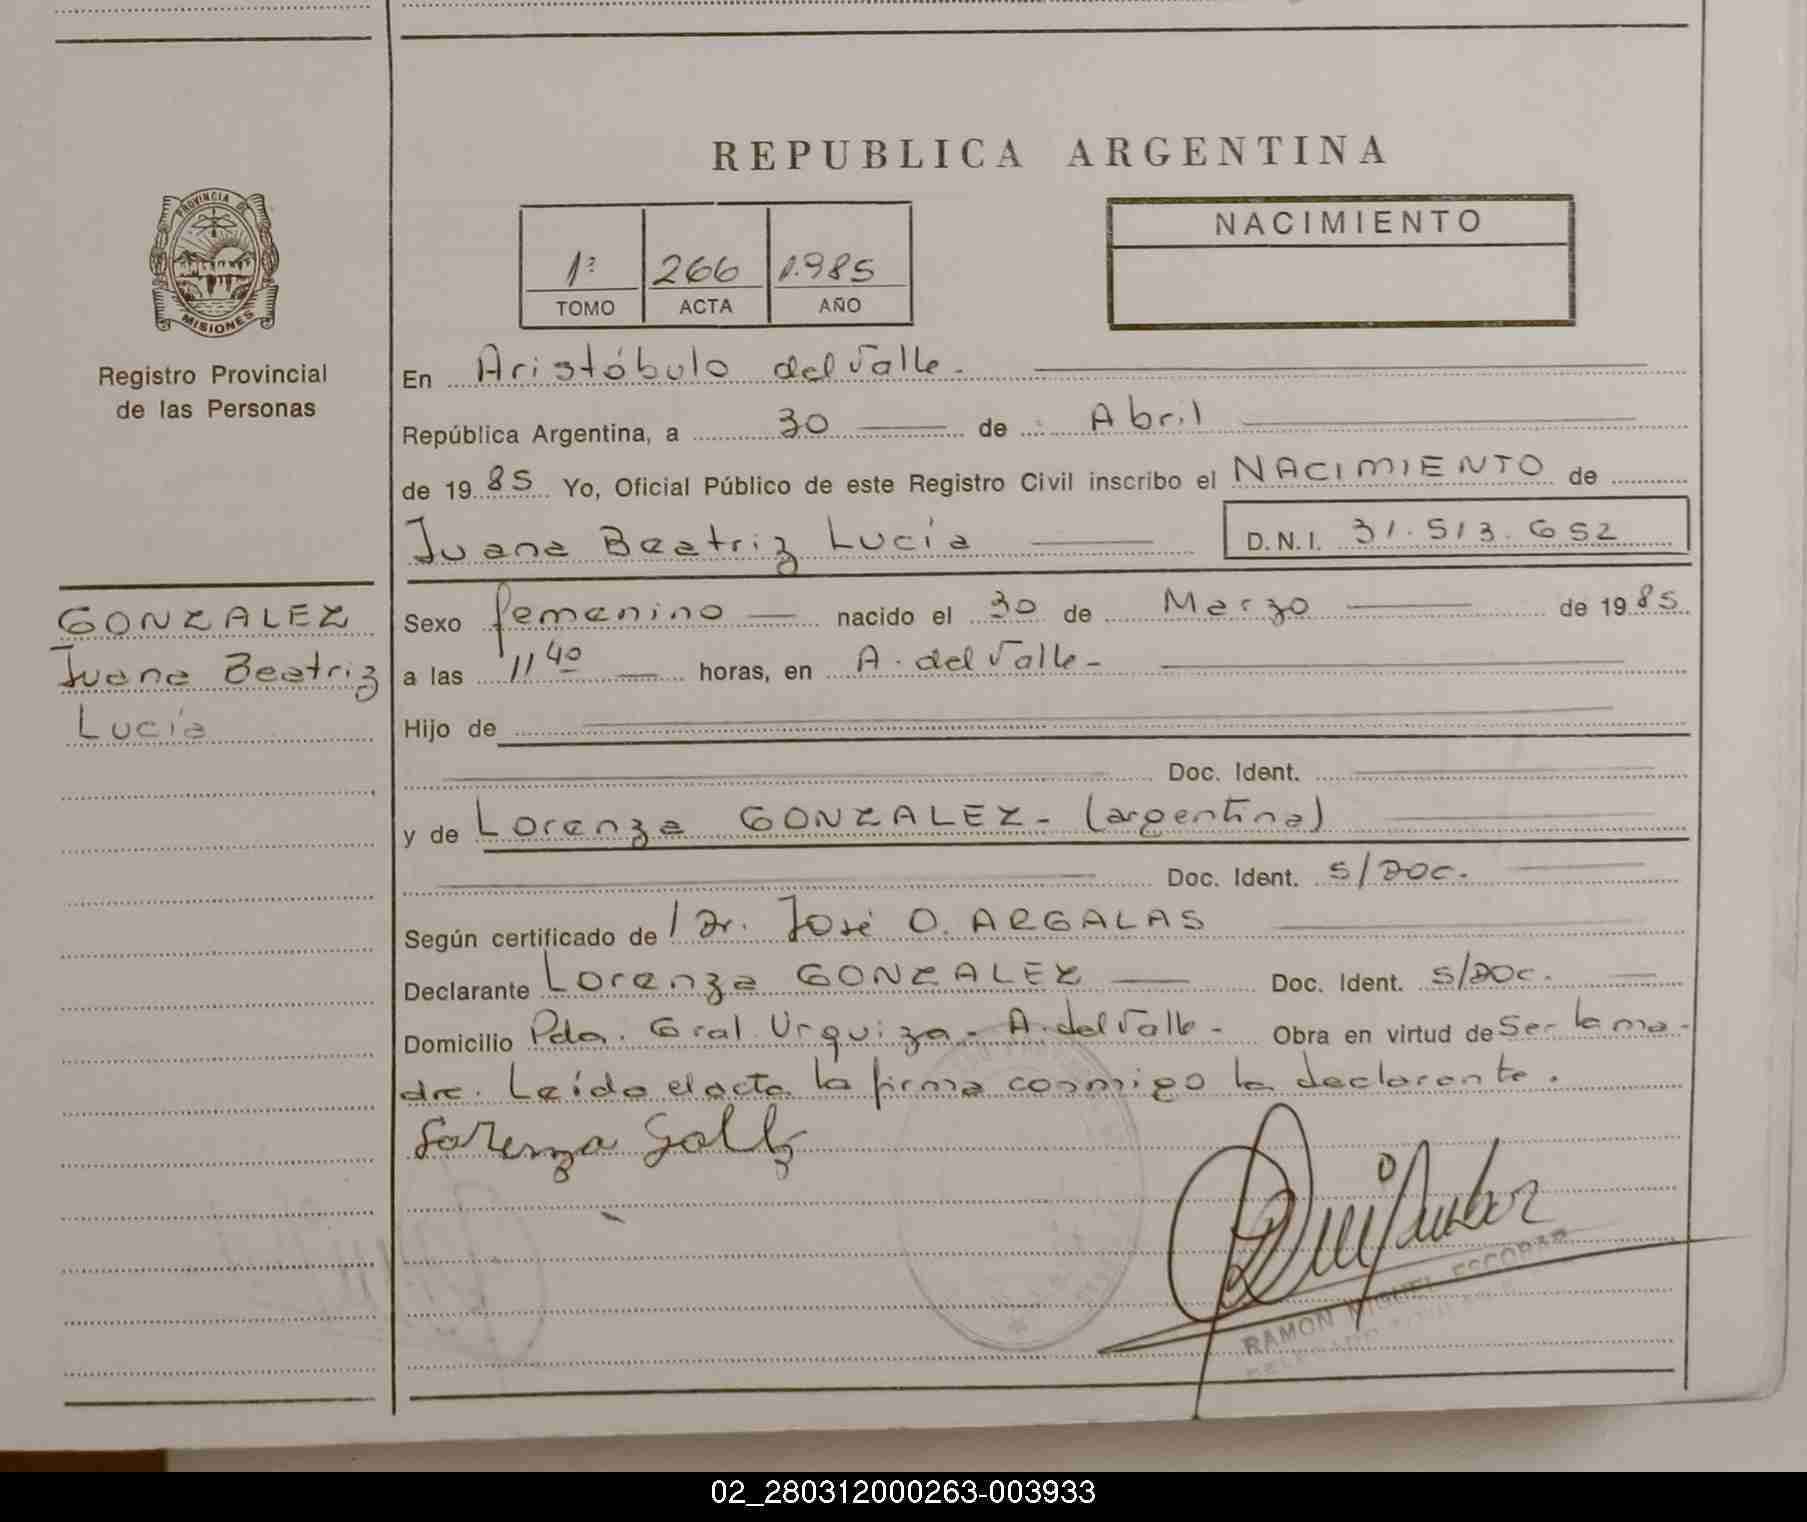 REPUBLICA ARGENTINA
PROVINCIA DE
MISIONES
Registro Provincial
de las Personas
1º 266 1.985
TOMO ACTA AÑO
NACIMIENTO
En Aristóbulo del Valle.
República Argentina, a 30 de Abril
de 1985 Yo, Oficial Público de este Registro Civil inscribo el NACIMIENTO de
Juana Beatriz Lucía D.N.I. 31.513.652
GONZALEZ
Juana Beatriz
Lucía
Sexo femenino nacido el 30 de Marzo de 1985
a las 11 40 horas, en A. del Valle-
Hijo de
Doc. Ident.
y de Lorenza GONZALEZ- (argentina)
Doc. Ident. S/DOC.
Según certificado de Dr. José O. ARGALAS
Declarante Lorenza GONZALEZ Doc. Ident. S/DOC.
Domicilio Pda. Gral. Urquiza - A. del Valle - Obra en virtud de Ser la ma-
dre. Leída el acta la firma conmigo la declarante.
Lorenza
RAMON MIGUEL ESCOBAR
02_280312000263-003933